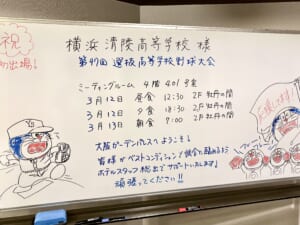 祝
初出場！
横浜清陵高等学校 様
第97回 選抜高等学校野球大会
ミーティングルーム 4階 401号室
3月12日 昼食 12:30 2F 牡丹の間
3月12日 夕食 18:30 2F 牡丹の間
3月13日 朝食 9:00 2F 牡丹の間
大阪ガーデンパレスへようこそ！
皆様がベストコンディションで試合に臨めるよう
ホテルスタッフ総出でサポートいたします！
頑張ってください!!
フレー